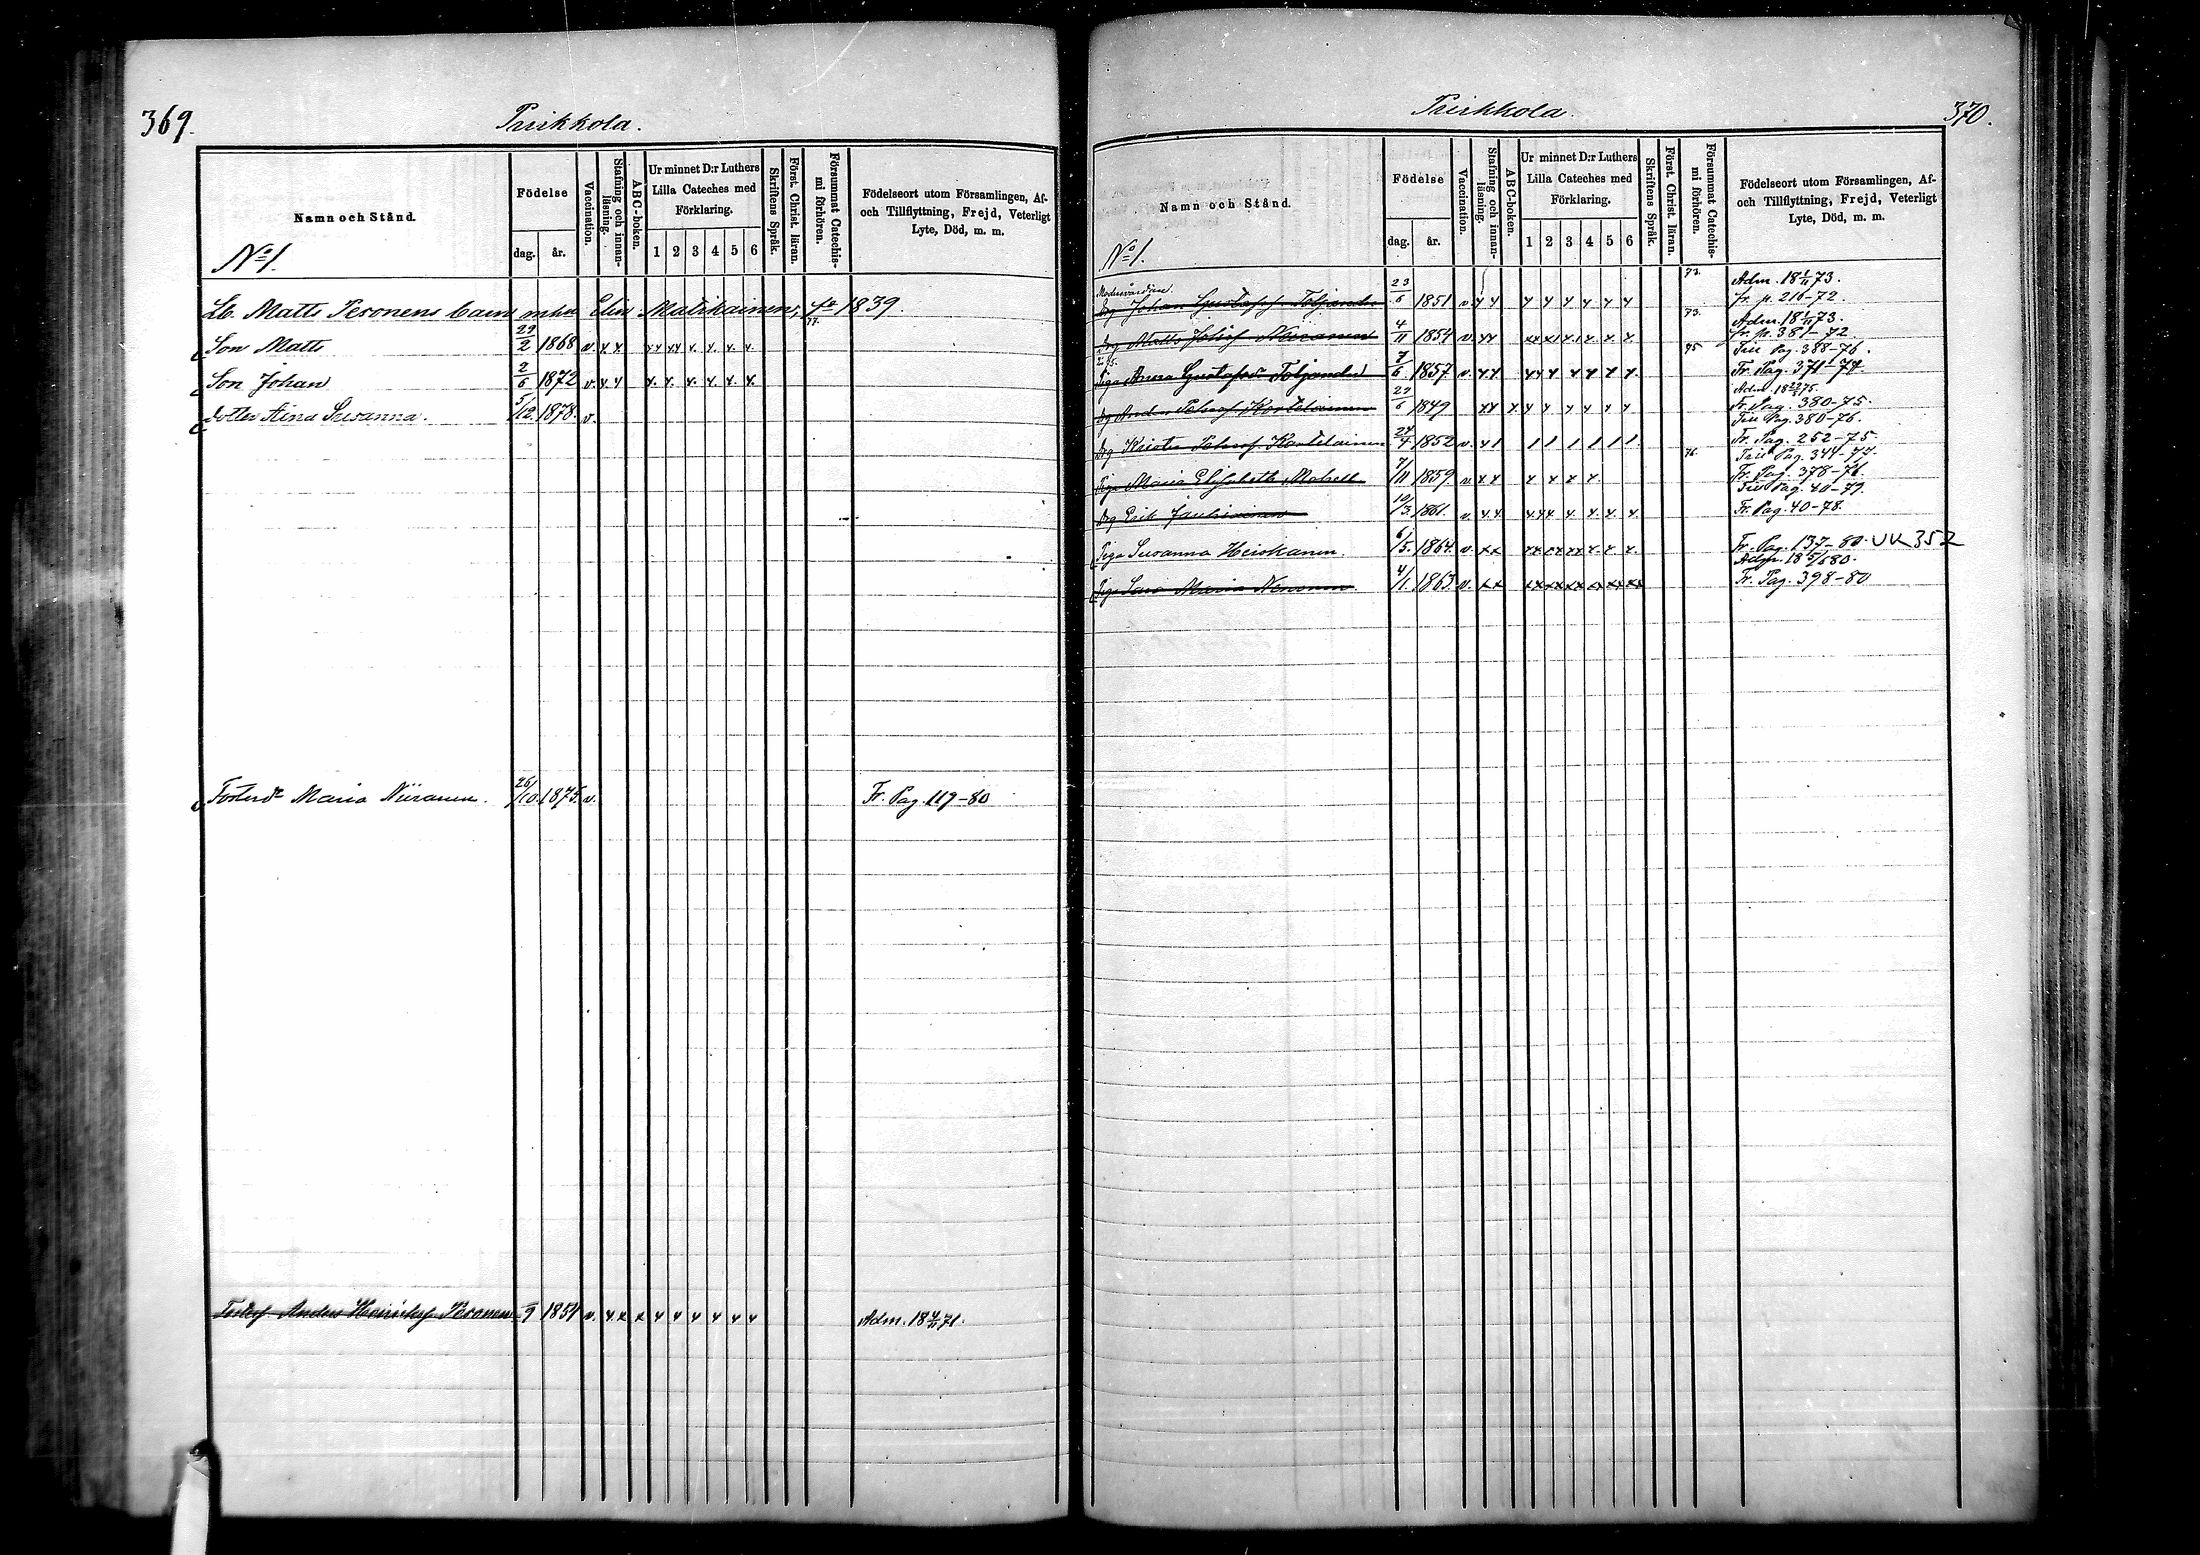 369.
Puikkola.
Namn och Stånd.
Födelse
dag.
år.
Vaccination.
Stafning och innanläsning.
ABC-boken.
Ur minnet D:r Luthers
Lilla Cateches med
Förklaring.
1 2 3 4 5 6
Skriftens Språk.
Först. Christ. läran.
Försummat Catechismi förhören.
Födelseort utom Församlingen, Af-
och Tillflyttning, Frejd, Veterligt
Lyte, Död, m. m.
No 1.
Lb. Matts Peronens barn mhu Elin Matikainen, fö 1839.
Son Matts 29/2 1868 v. x x xx xx x. x. x. x. 77.
Son Johan 2/6 1872 v. x x x. x. x. x. x. x.
dotter Aina Susanna. 5/12 1878. v.
Fosterdr Maria Niiranen. 26/10. 1875. v. Fr. Pag. 119-80
Anders Henriksf Peronen /9 1854 v. x x x x x x x x x Adm. 18 71.
370.
Puikkola.
Namn och Stånd.
Födelse
dag.
år.
Vaccination.
Stafning och innanläsning.
ABC-boken.
Ur minnet D:r Luthers
Lilla Cateches med
Förklaring.
1 2 3 4 5 6
Skriftens Språk.
Först. Christ. läran.
Försummat Catechismi förhören.
Födelseort utom Församlingen, Af-
och Tillflyttning, Frejd, Veterligt
Lyte, Död, m. m.
No 1.
73. Adm. 18 73.
Drg Johan Gustafsf Toljander 23/6 1851 v. x x x x x x x x fr. p. 216-72.
73. Adm. 18 73.
Drg Matts Johsf 4/11 1854 v. x x fr. p. 381-72
75 Till Pag. 388-76.
Piga Anna Gustafsdr Toljander 7/6 1857 v. x x Fr. Pag. 371-74
Adm. 18 75.
Drg Anders Kortelainen 29/6 1849 x x x x x x x x x Fr. Pag. 380-75.
Till Pag. 380-76.
Drg Krister Kortelainen 24/4 1852 v. Fr. Pag. 252-75.
76. Till Pag. 344-77.
Piga Maria Elisabeth 7/11 1859 v. x x x x x x Fr. Pag. 378-76.
Till Pag. 40-79.
Drg Erik 10/3. 1861. v. x x Fr. Pag. 40-78.
Piga Susanna Heiskanen. 6/5. 1864. v. x x Fr. Pag. 137-80. UK 352
Adm. 18 80.
Piga Maria 4/1. 1863. v. x x Fr. Pag. 398-80